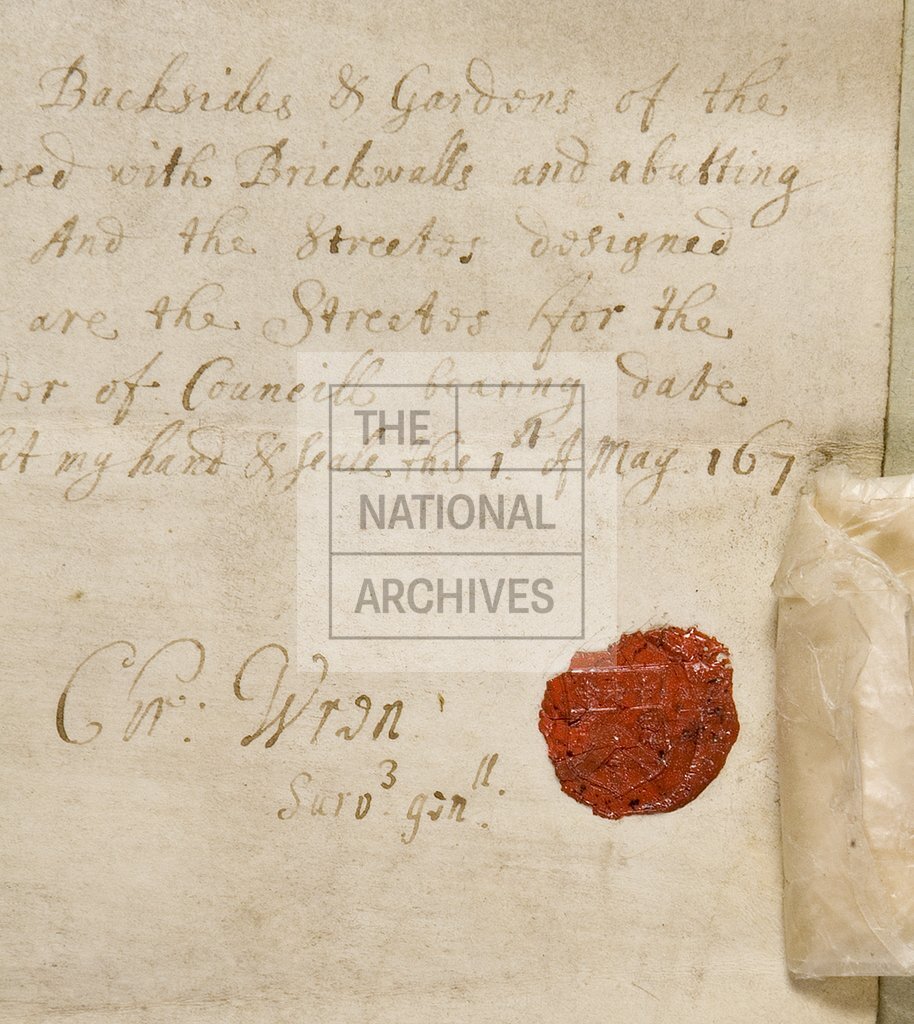 Backsides & Gardens of the
sed with Brickwalls and abutting
And the Streetes designed
are the Streetes ffor the
der of Councill bearing date
my hand & seale this 1st of May 167
THE
NATIONAL
ARCHIVES
Chr: Wren
Surv^r genll.